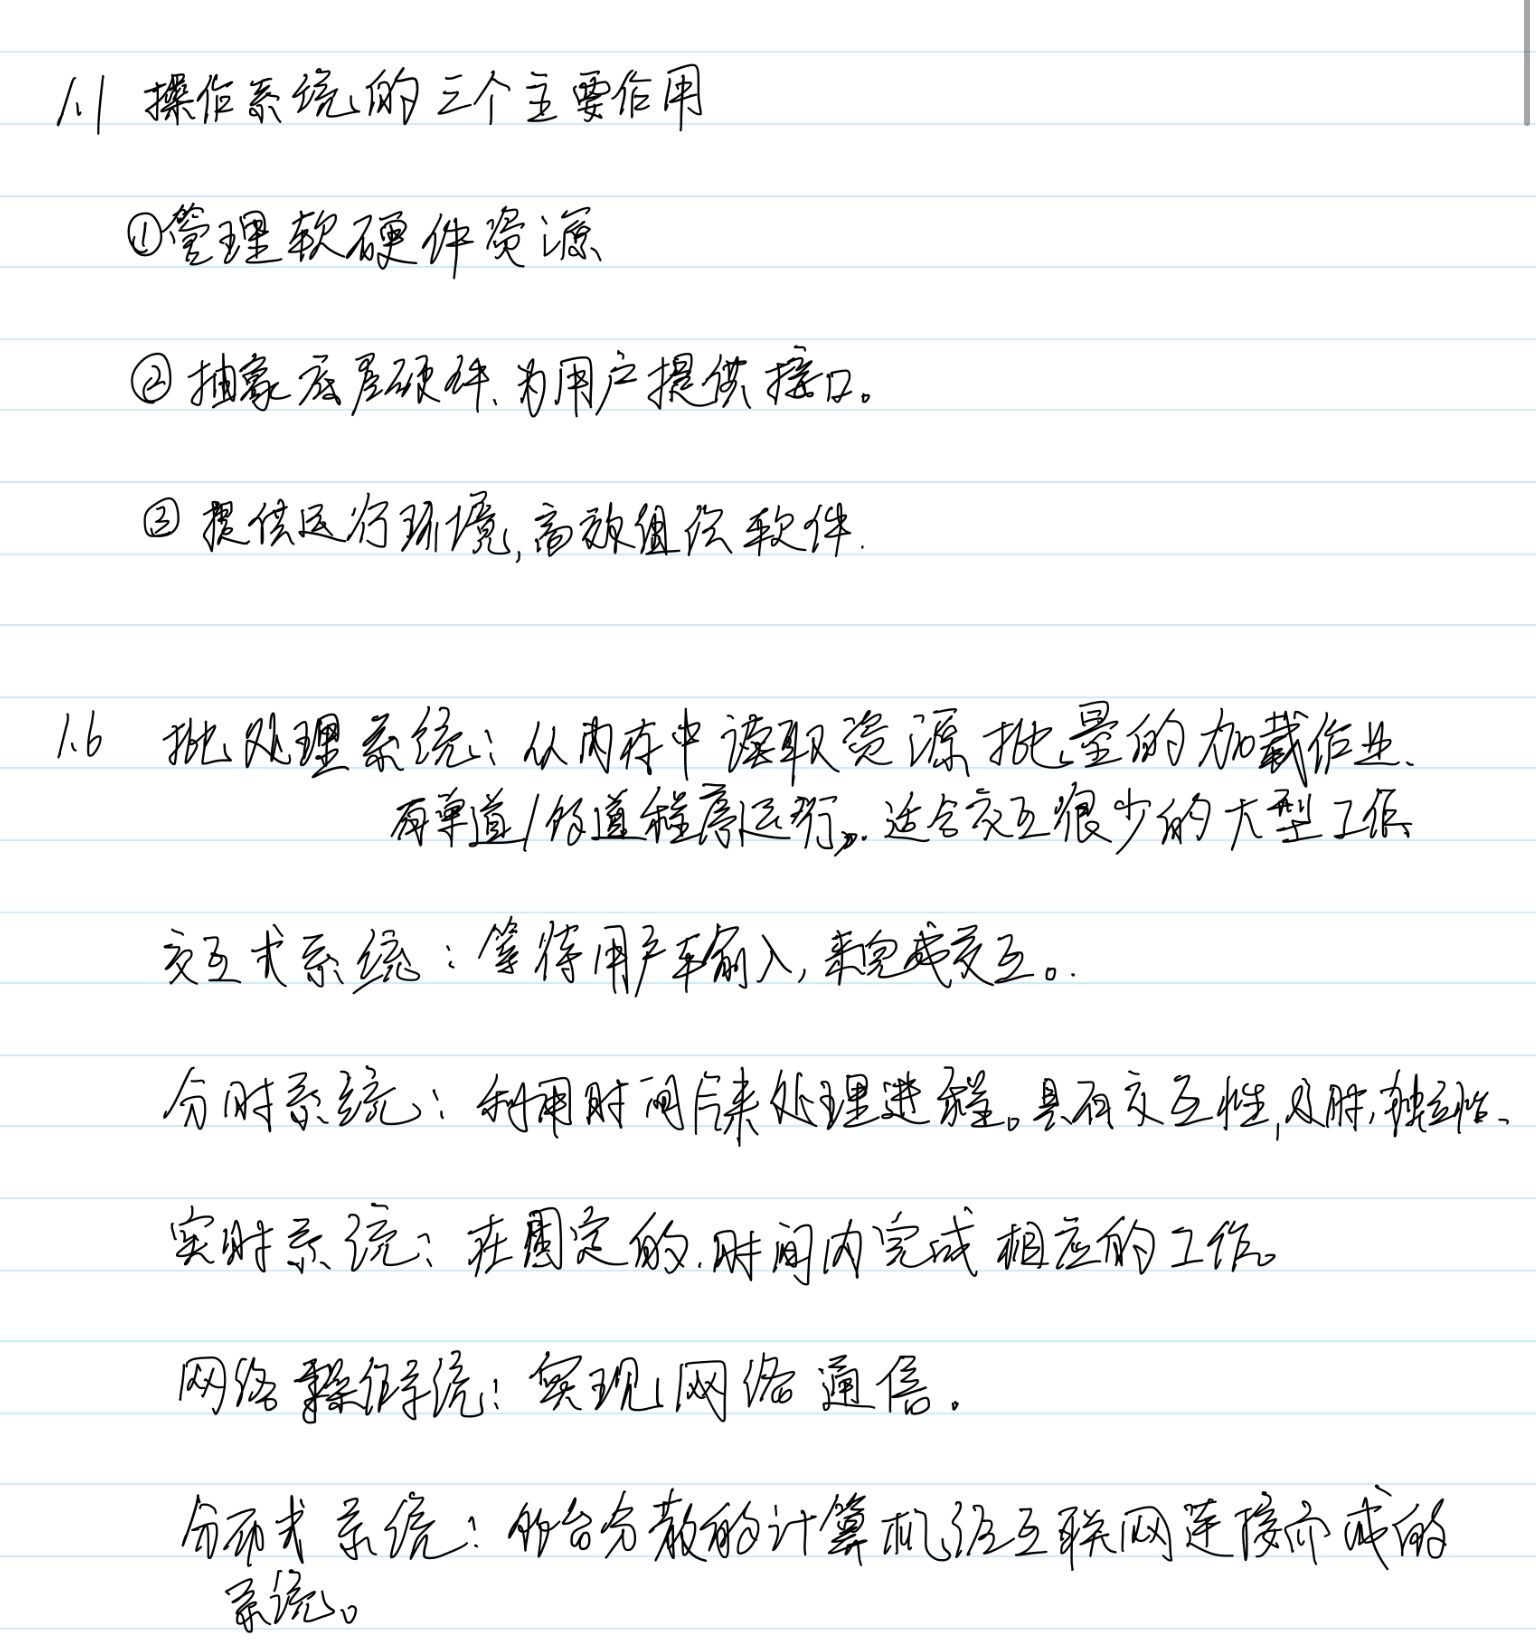 1.1 操作系统的三个主要作用
①管理软硬件资源
② 抽象底层硬件、为用户提供接口。
③ 提供运行环境,高效组织软件.
1.6 批处理系统: 从内存中读取资源批量的加载作业、
有单道/多道程序运行。适合交互很少的大型工作、
交互式系统: 等待用户输入, 来完成交互。
分时系统: 利用时间片来处理进程。具有交互性,及时,独立性、
实时系统: 在固定的.时间内完成相应的工作。
网络操作系统: 实现网络通信.
分布式系统: 多台分散的计算机经互联网连接而成的
系统。